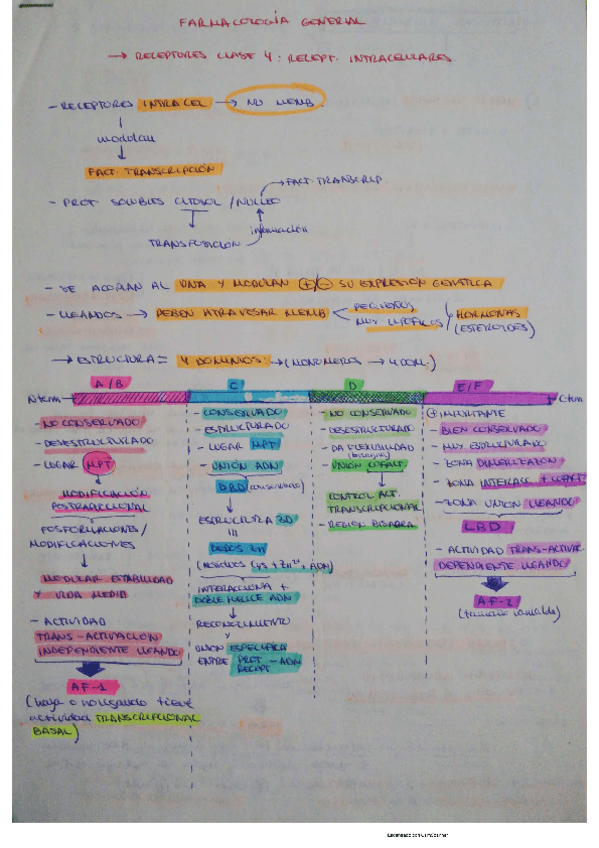 FARMACOLOGÍA GENERAL
→ RECEPTORES CLASE 4: RECEPT. INTRACELULARES
- RECEPTORES INTRACEL → NO MEMB.
modulan
FACT. TRANSCRIPCIÓN
→ FACT. TRANSCRIP
- PROT SOLUBLES CITOSOL / NÚCLEO
información
- SE ACOPLAN AL DNA Y MODULAN ⊕/⊖ SU EXPRESIÓN GENÉTICA
- LIGANDOS → DEBEN ATRAVESAR MEMB < PEQUEÑOS, MUY LIPÓFILOS / HORMONAS (ESTEROIDES)
→ ESTRUCTURA = 4 DOMINIOS → (MONÓMEROS → 4 DOM.)
A/B C D E/F
N term Cterm
- NO CONSERVADO
- DESESTRUCTURADO
- LUGAR MPT
MODIFICACIÓN
POSTRADUCCIONAL
MODIFICACIONES
MODULAR ESTABILIDAD
Y VIDA MEDIA
- ACTIVIDAD
TRANS-ACTIVACIÓN
INDEPENDIENTE LIGANDO
AF-1
(haya o no ligando tiene
actividad TRANSCRIPCIONAL
BASAL)
- CONSERVADO
ESTRUCTURADO
- LUGAR MPT
- UNIÓN ADN
DBD (conservado)
ESTRUCTURA 3D
DEDOS Zn
(RESIDUOS Cys + Zn²⁺ + ADN)
INTERACCIONA +
DOBLE HÉLICE ADN
RECONOCIMIENTO
Y
UNIÓN ESPECÍFICA
ENTRE PROT - ADN
RECEPT
- NO CONSERVADO
- DESESTRUCTURADO
- DA FLEXIBILIDAD
(bisagra)
- UNIÓN COFACT.
CONTROL ACT.
TRANSCRIPCIONAL
- REGIÓN BISAGRA
⊕ IMPORTANTE
- BIEN CONSERVADO
- MUY ESTRUCTURADO
- ZONA DIMERIZATION
- ZONA INTERACC + COFACT
- ZONA UNIÓN LIGANDO
LBD
- ACTIVIDAD TRANS-ACTIVAC.
DEPENDIENTE LIGANDO
AF-2
(tamaño variable)
Escaneado con CamScanner